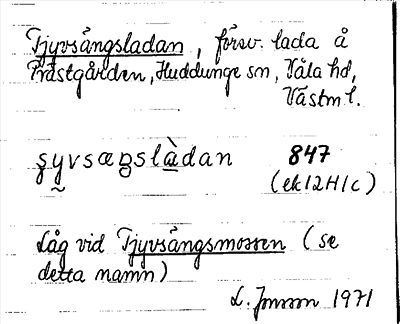 Tjyvsängsladan, försv. lada å
Prästgården, Huddunge sn, Våla hd,
Västm l.
ʂy̬vsæŋslàdan 847
(ek 12H1c)
Låg vid Tjyvsängsmossen (se
detta namn)
L. Jonson 1971